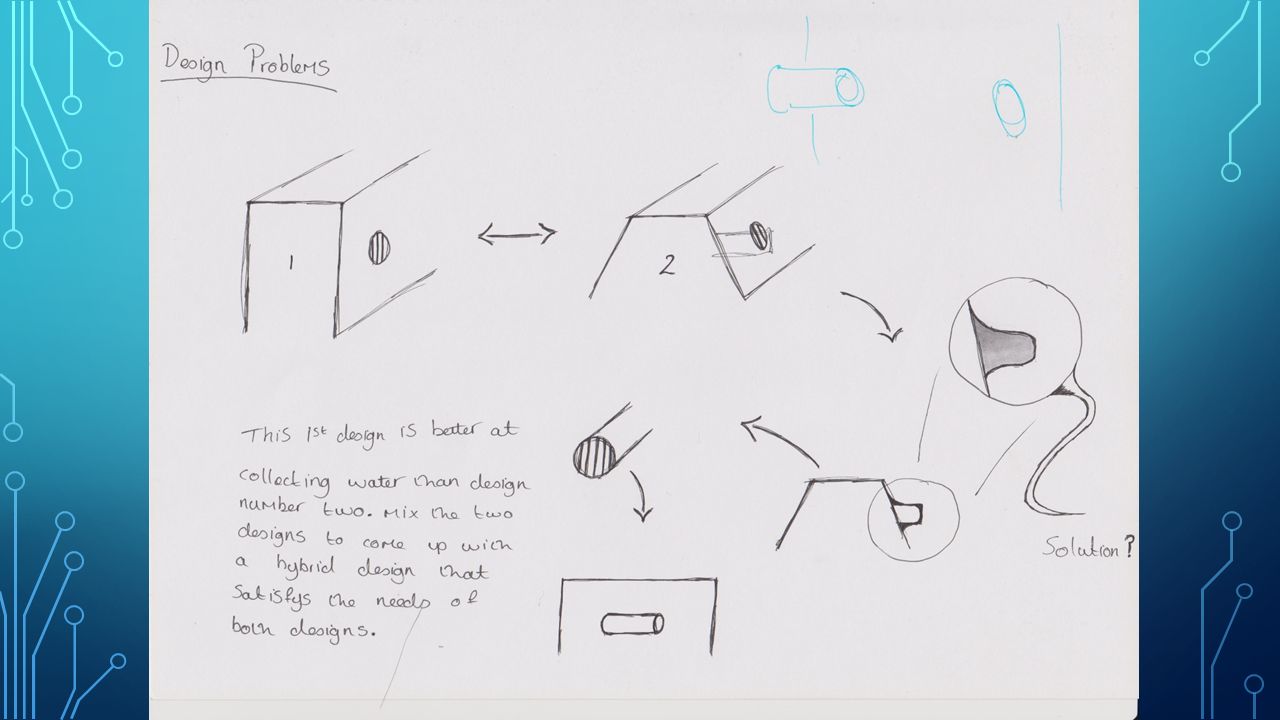 Design Problems
1
2
This 1st design is better at
collecting water than design
number two. Mix the two
designs to come up with
a hybrid design that
satisfys the needs of
both designs.
Solution?